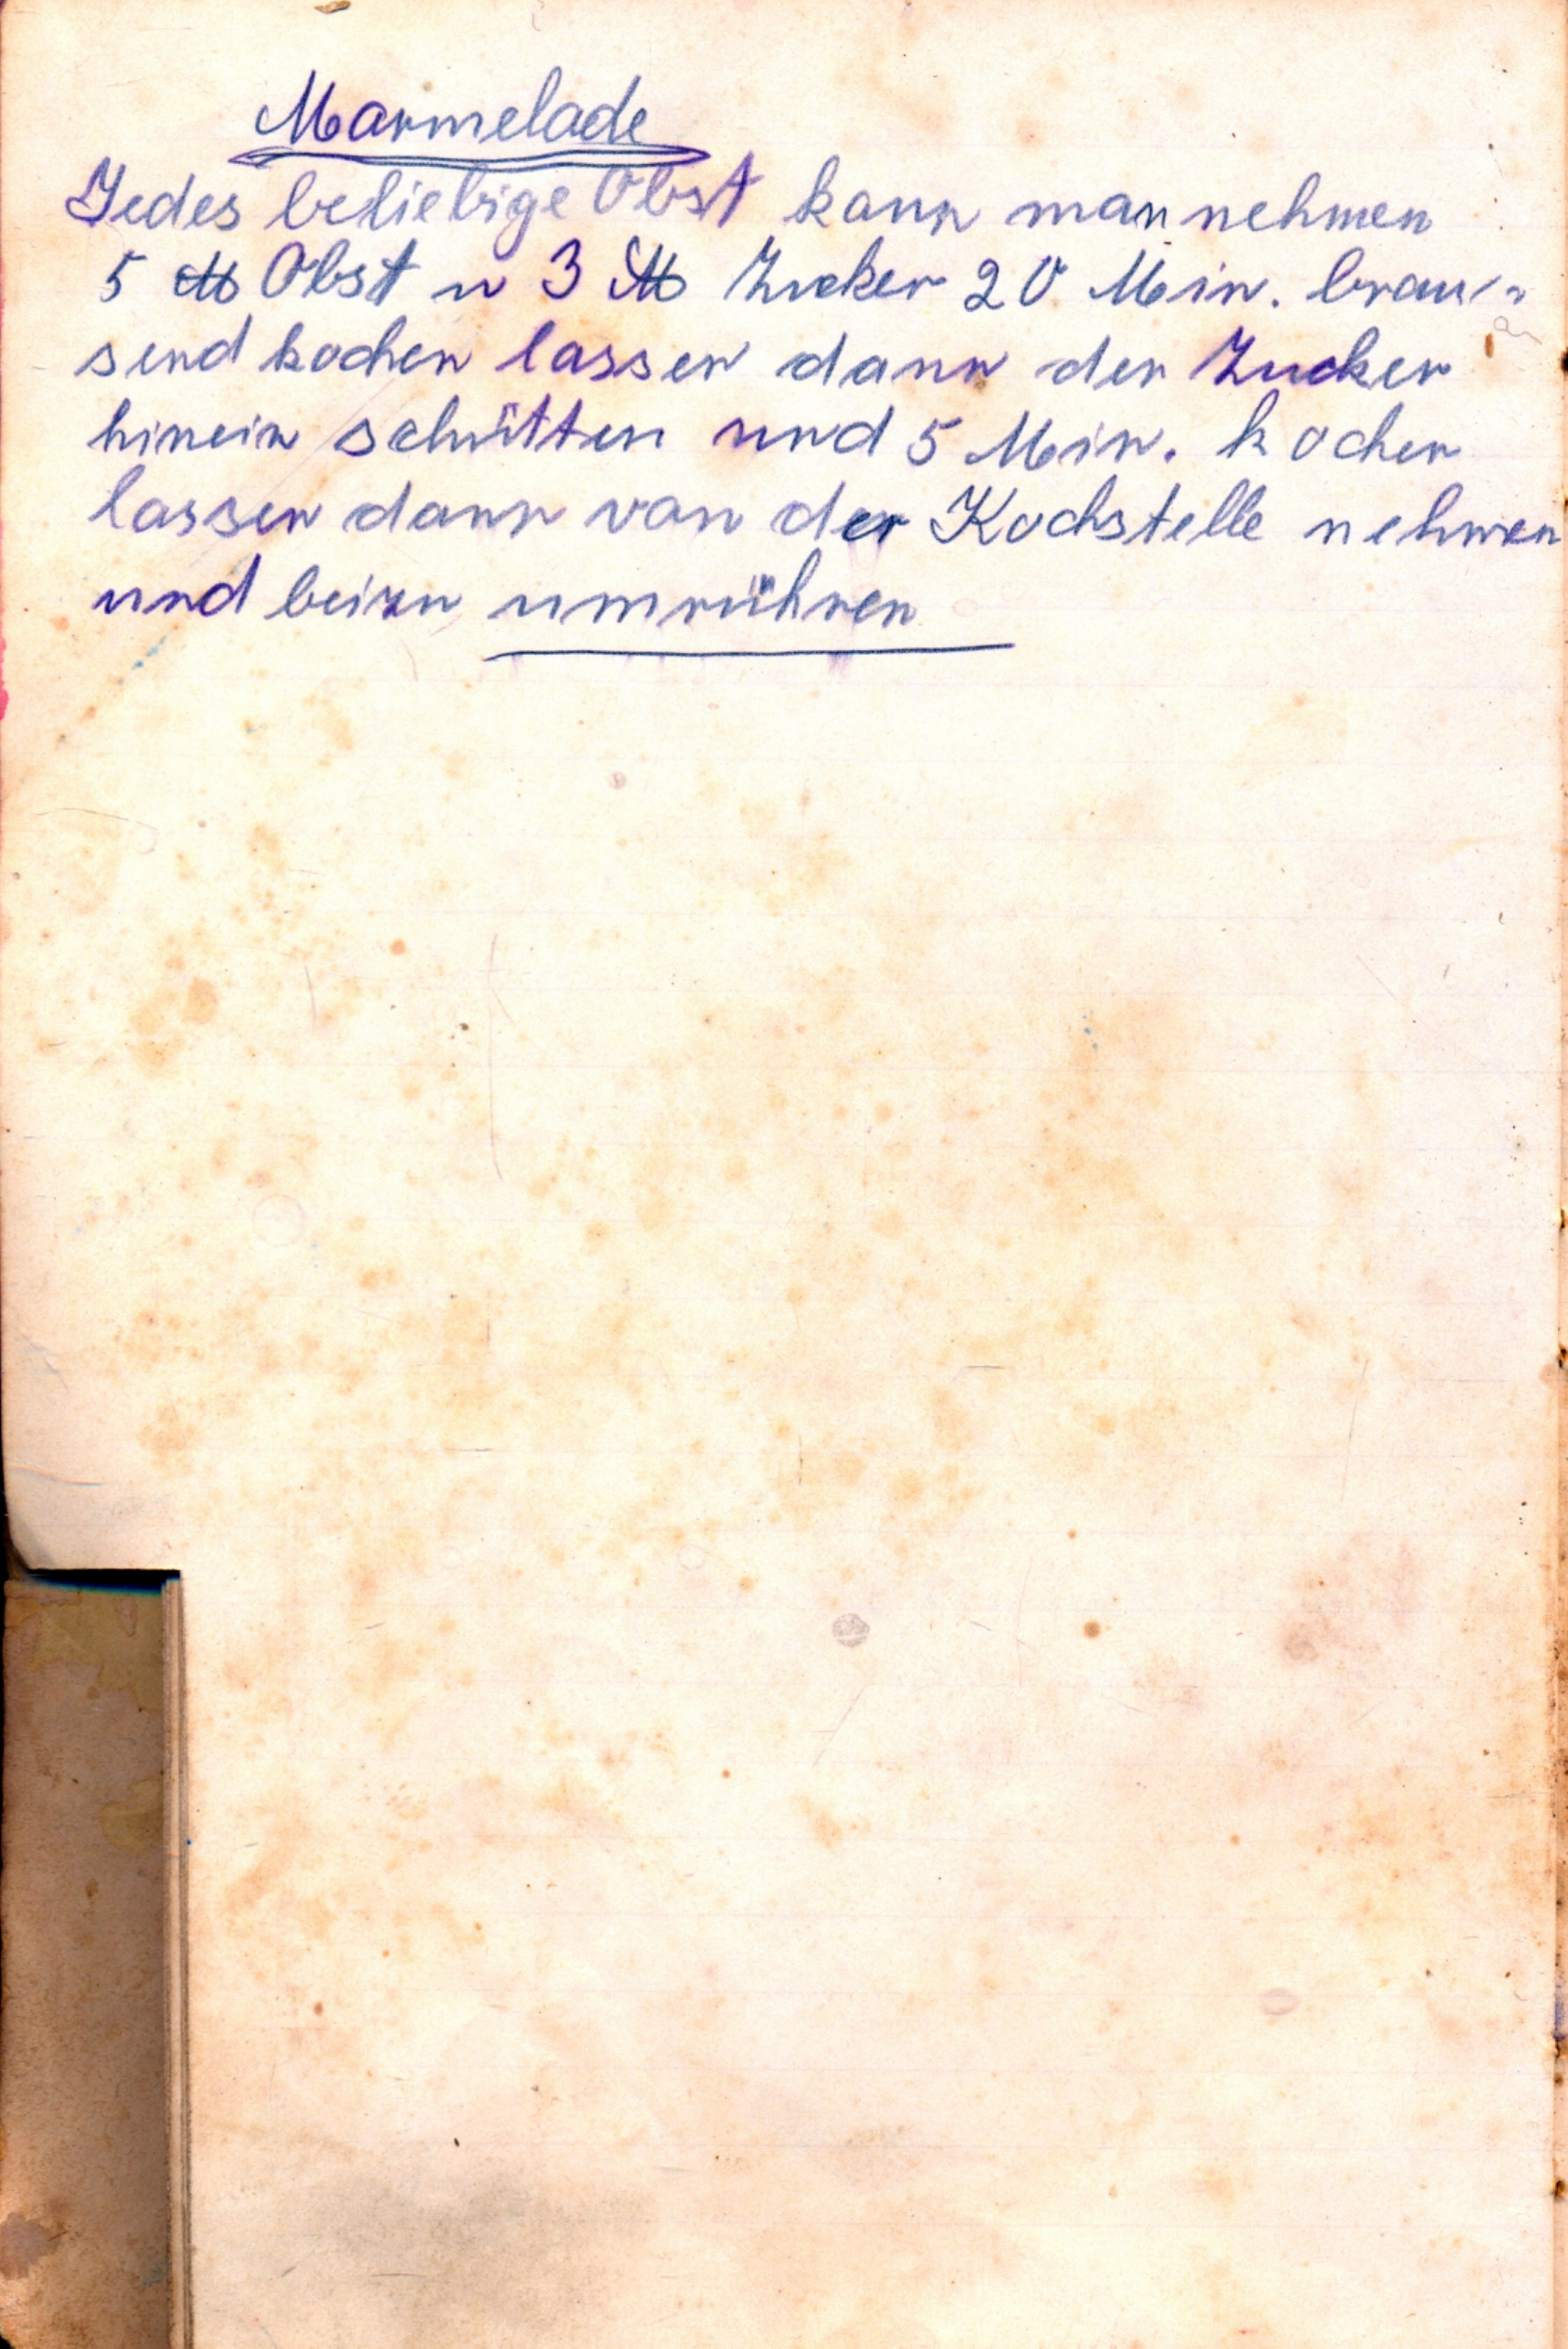 Marmelade
Jedes beliebige Obst kann man nehmen
5 ℔ Obst u 3 ℔ Zucker 20 Min. brau-
send kochen lassen dann der Zucker
hinein schütten und 5 Min. kochen
lassen dann von der Kochstelle nehmen
und umrühren